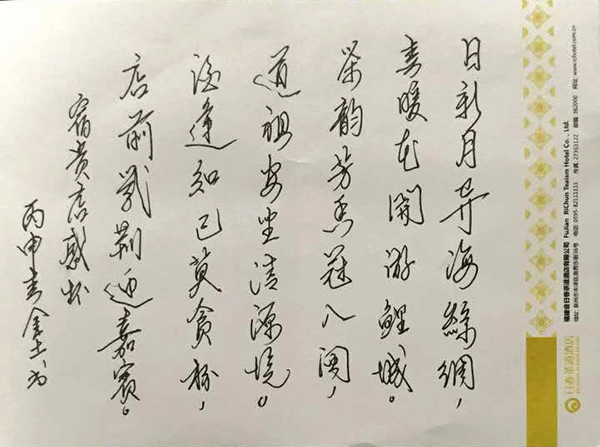 日新月异海絲绸，
春暖花開游鲤城。
茶韵芳香冠八闽，
道祖安坐清源境。
酒逢知己莫贪杯，
店前迎嘉宾。
宿贵店感
丙申春金土书
福建省日春茶道酒店有限公司 FuJian RiChun Teaism Hotel Co., Ltd.
地址: 泉州市丰泽区 电话: 0595-82111111 传真: 27353122 邮编: 362000 网址: www.rchotel.com.cn
日春茶道酒店